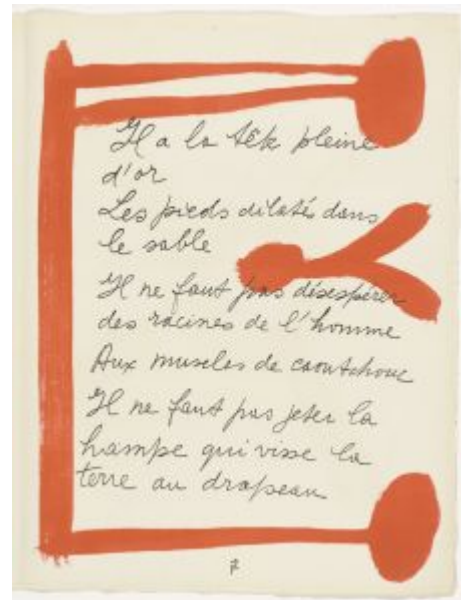 Il a la tête pleine
d'or
Les pieds dilatés dans
le sable
Il ne faut pas désespérer
des racines de l'homme
Aux muscles de caoutchouc
Il ne faut pas jeter la
hampe qui visse la
terre au drapeau
7